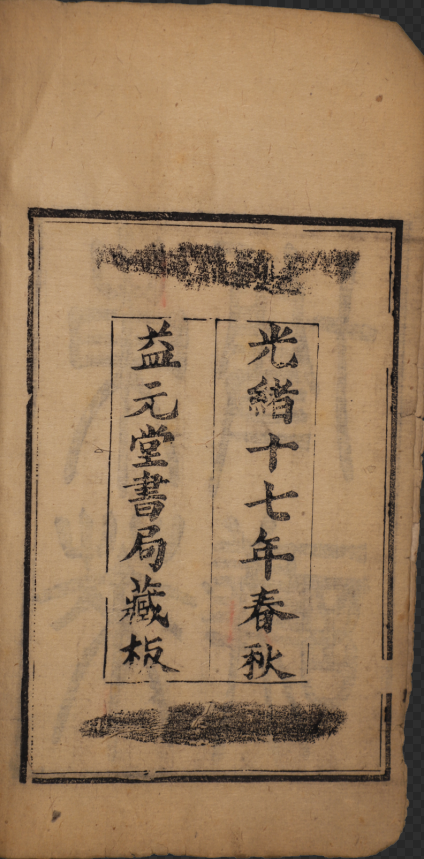 光緒十七年春秋
益元堂書局藏板